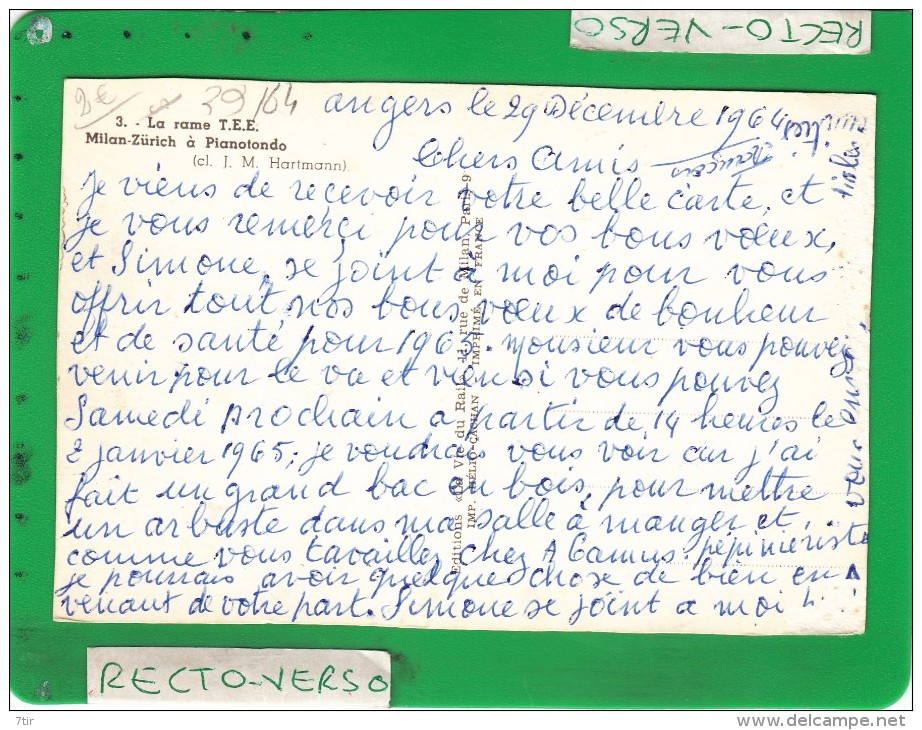 RECTO-VERSO
2€ 39/64
3. - La rame T.E.E.
Milan-Zürich à Pianotondo
(cl. J. M. Hartmann)
angers le 29 Décembre 1964
Chers Amis
je viens de recevoir votre belle carte, et
je vous remerci pour vos bons vœux,
et Simone, se joint à moi pour vous
offrir tout nos bons vœux de bonheur
et de santé pour 1965. Monsieur vous pouvez
venir pour le va et vien si vous pouvez
Samedi prochain a partir de 14 heures le
2 janvier 1965, je voudrais vous voir car j'ai
fait un grand bac en bois, pour mettre
un arbuste dans ma salle à manger et,
comme vous tavaillez chez A Camus pépinieriste
je pourrais avoir quelque chose de bien en
venant de votre part. Simone se joint a moi
vous
Editions «La Vie du Rail», 11, rue de Milan, Paris-9
IMP. HÉLIO-CACHAN IMPRIMÉ EN FRANCE
RECTO-VERSO
7tir
www.delcampe.net